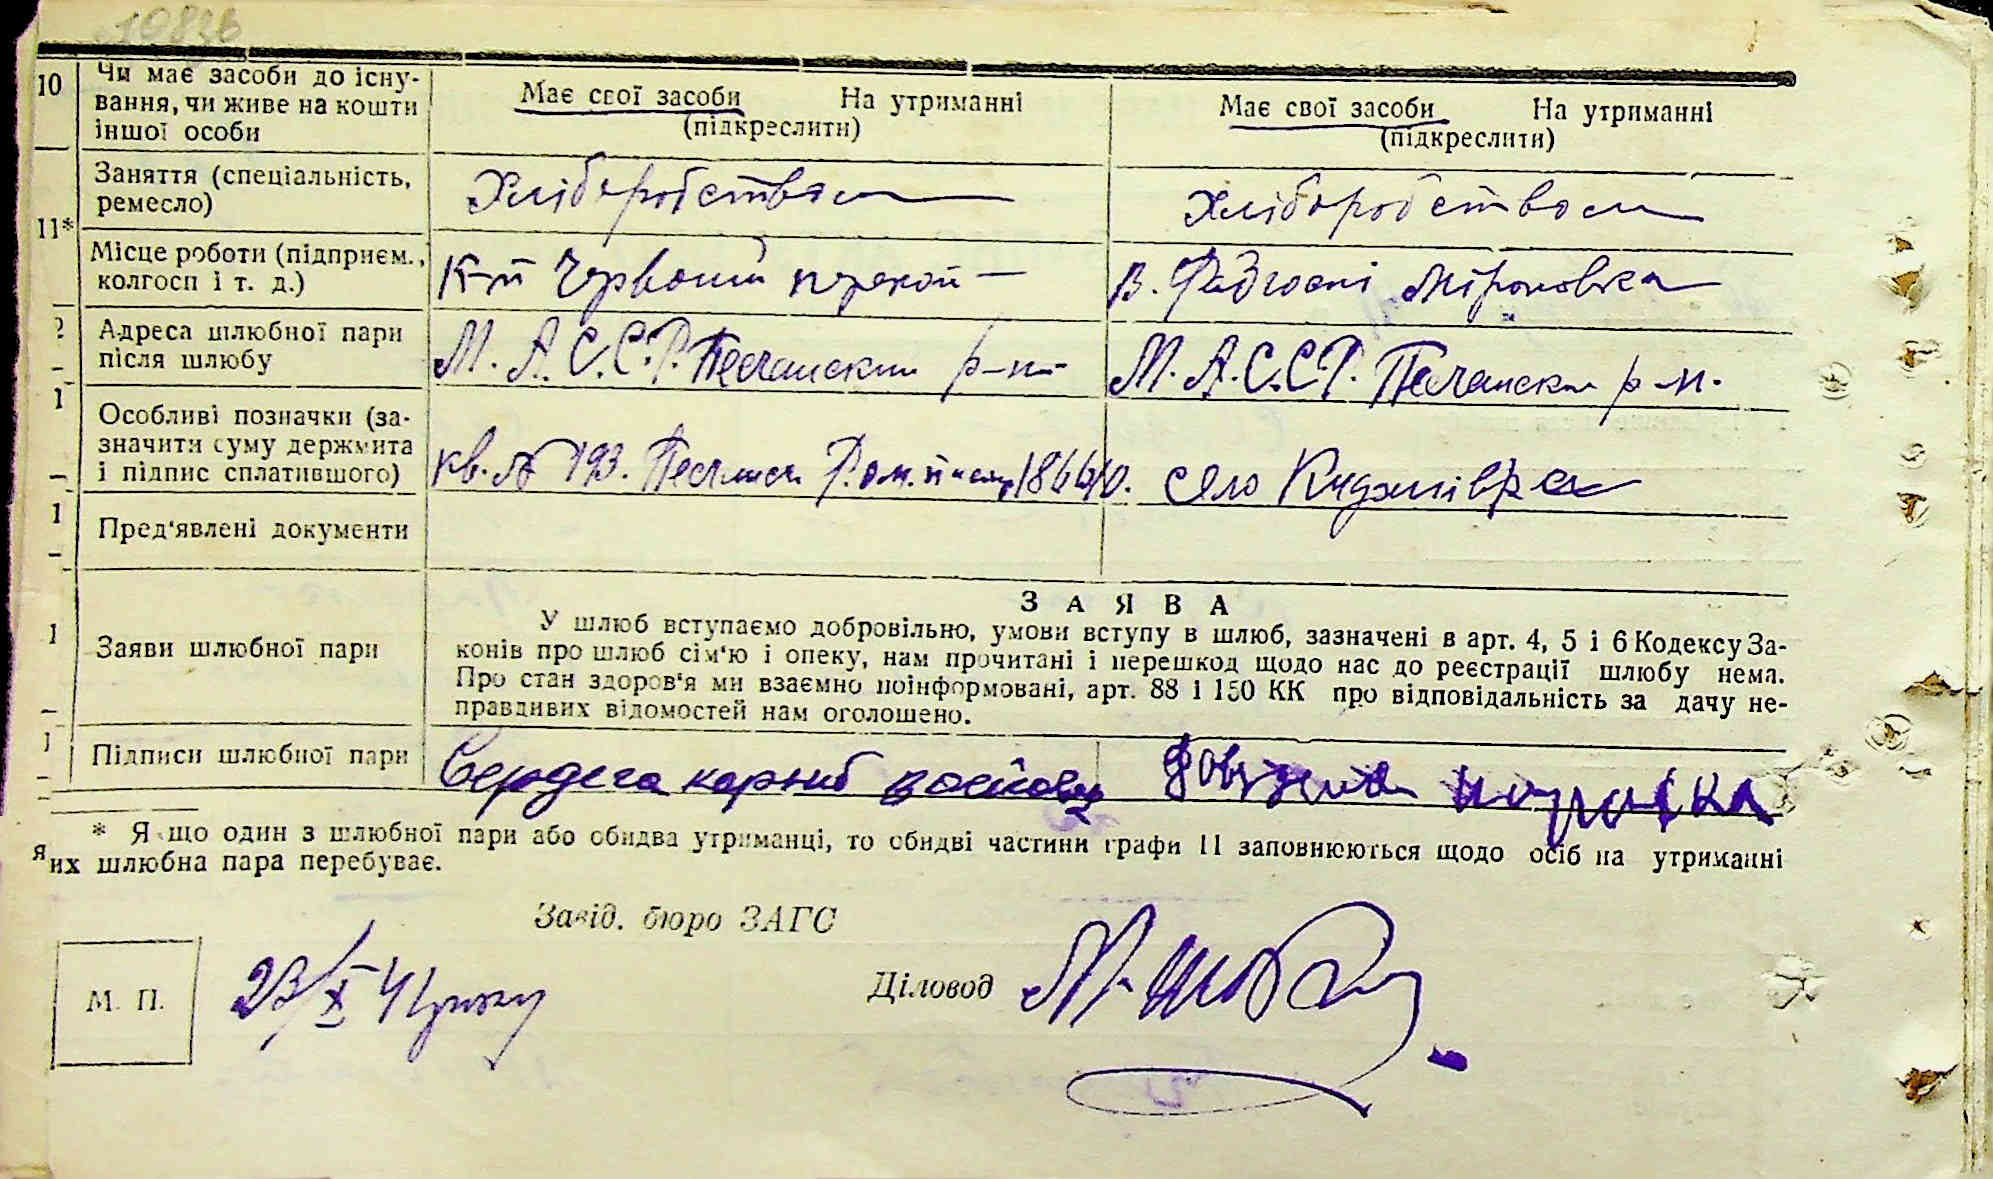 10
Чи має засоби до існу-
вання, чи живе на кошти
іншої особи
Має свої засоби На утриманні
(підкреслити)
Має свої засоби На утриманні
(підкреслити)
11*
Заняття (спеціальність,
ремесло)
Хліборобством
Хліборобством
Місце роботи (підприєм.,
колгосп і т. д.)
К-п Червоний перекоп
В. Радгоспі Мироновка
Адреса шлюбної пари
після шлюбу
М. А. С. С. Р. Песчанский р-н.
М. А. С. С. Р. Песчански р-н.
Особливі позначки (за-
значити суму держмита
і підпис сплатившого)
кв. № 193. село
Пред'явлені документи
Заяви шлюбної пари
ЗАЯВА
У шлюб вступаємо добровільно, умови вступу в шлюб, зазначені в арт. 4, 5 і 6 Кодексу За-
конів про шлюб сім'ю і опеку, нам прочитані і перешкод щодо нас до реєстрації шлюбу нема.
Про стан здоров'я ми взаємно поінформовані, арт. 88 і 150 КК про відповідальність за дачу не-
правдивих відомостей нам оголошено.
Підписи шлюбної пари
Сердега
* Якщо один з шлюбної пари або обидва утриманці, то обидві частини графи 11 заповнюються щодо осіб на утриманні
яких шлюбна пара перебуває.
Завід. бюро ЗАГС
М. П.
23/X
Діловод